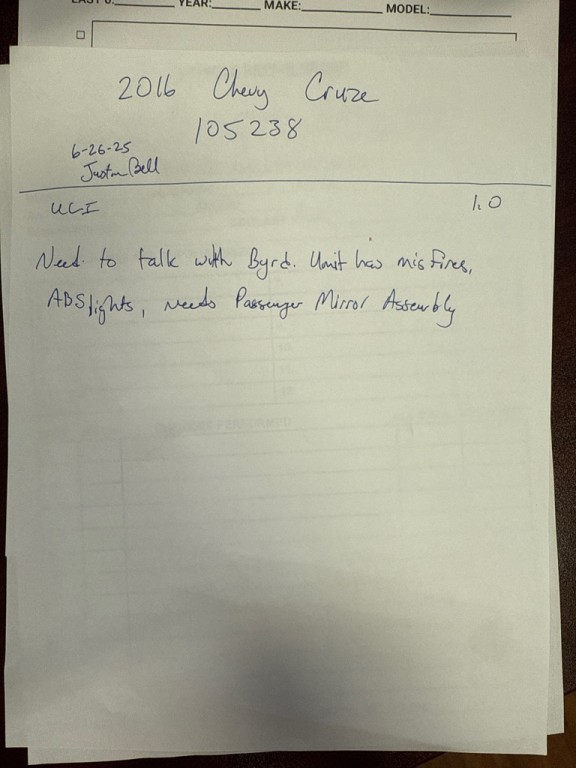 YEAR: MAKE: MODEL:
2016 Chevy Cruze
105238
6-26-25
Justin Bell
UCI 1.0
Need to talk with Byrd. Unit has misfires,
ABS lights, needs Passenger Mirror Assembly